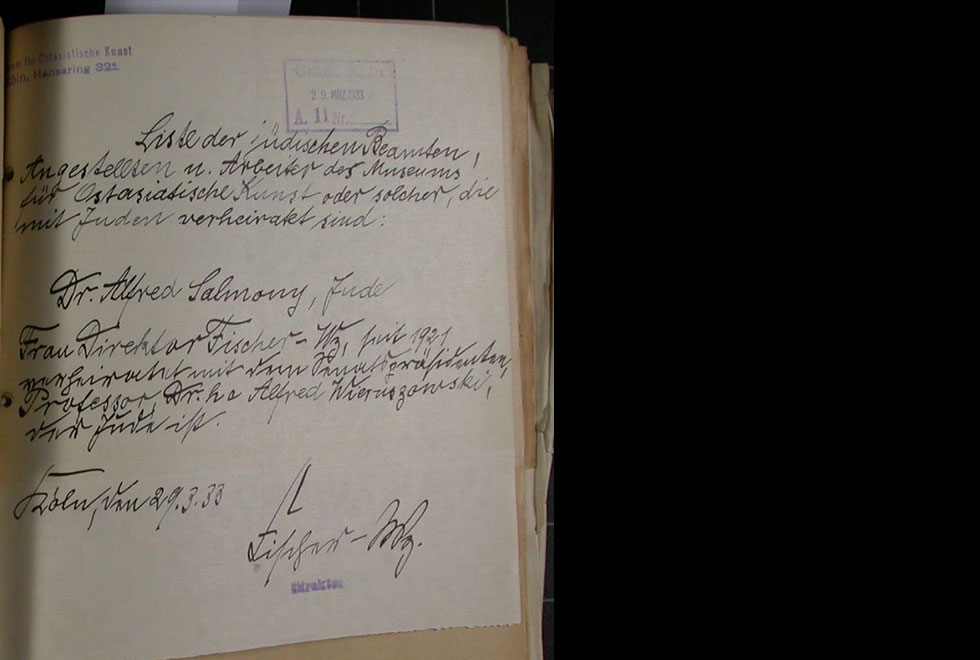 für Ostasiatische Kunst
Köln, Hansaring 32a
Stadt Köln
29. MRZ. 1933
A. 11 Nr.
Liste der jüdischen Beamten,
Angestellten u. Arbeiter des Museums
für Ostasiatische Kunst oder solcher, die
mit Juden verheiratet sind:
Dr. Alfred Salmony, Jude
Frau Direktor Fischer-Wz, seit 1921
verheiratet mit dem Senatspräsidenten,
Professor, Dr. h c Alfred Wieruszowski,
der Jude ist.
Köln, den 29.3.33
Fischer-Wz.
Direktor